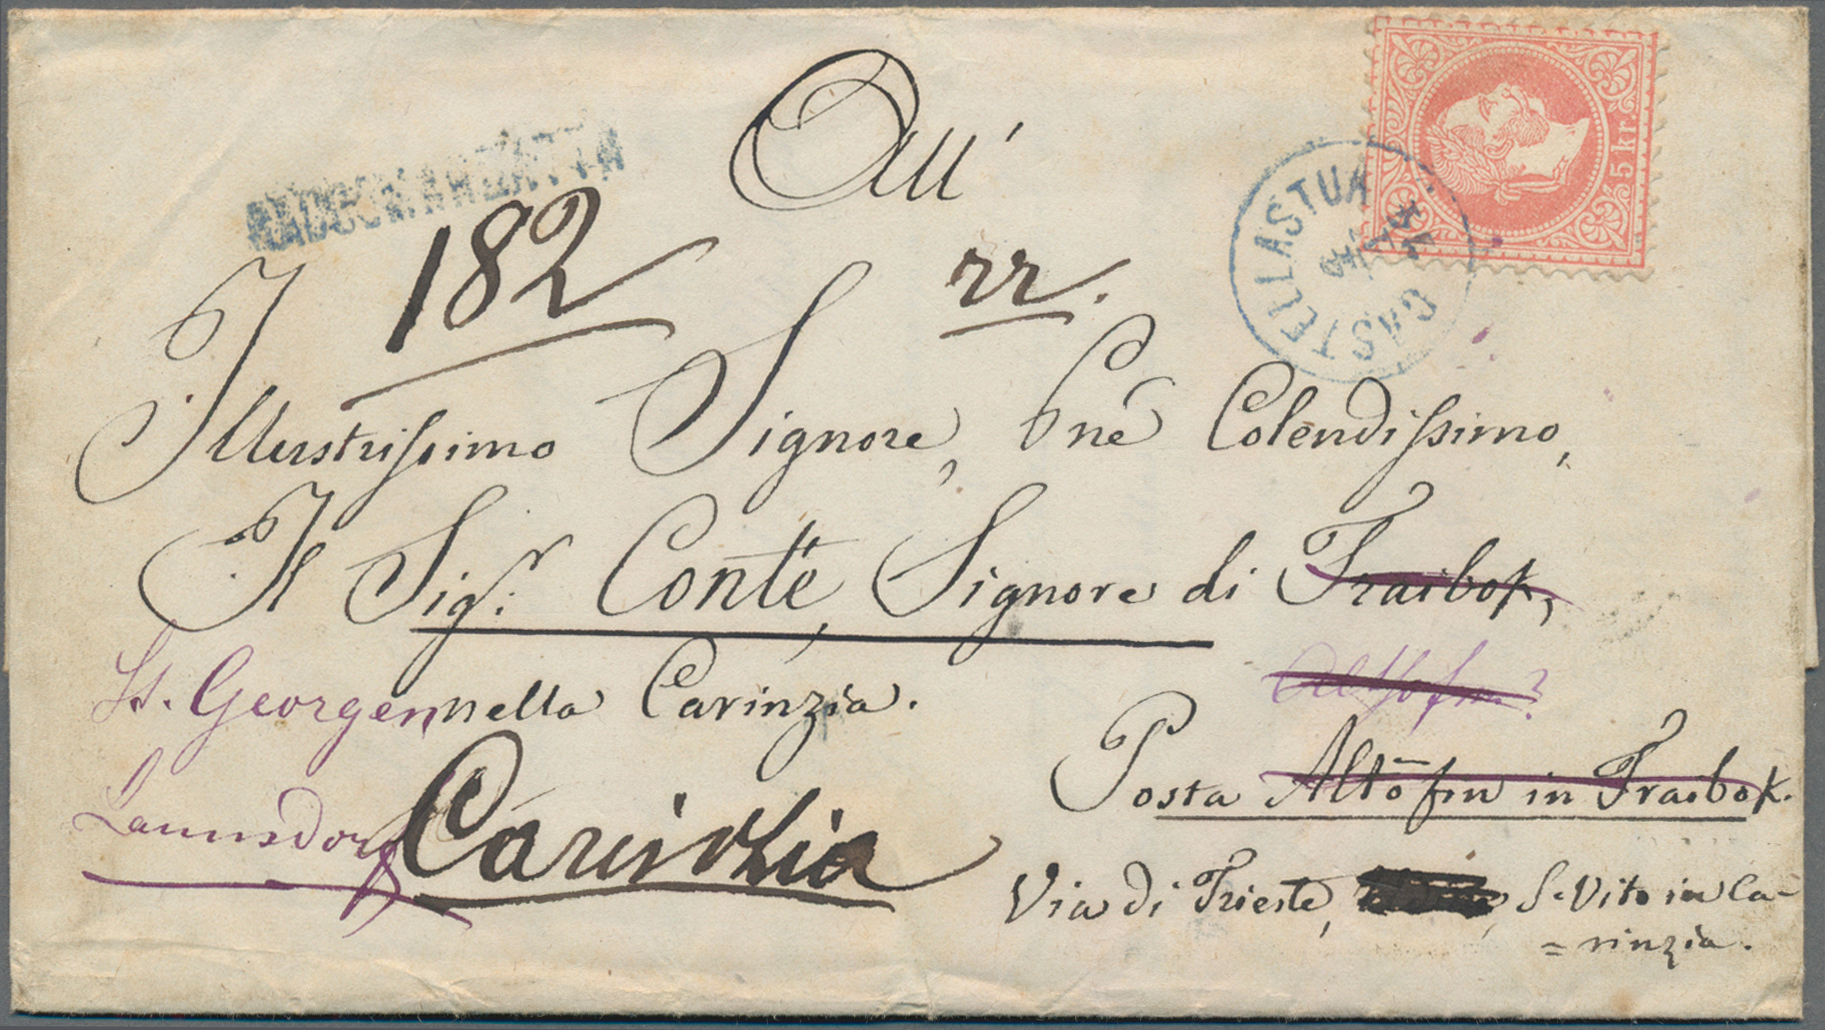 All'
RACCOMANDATTA
182
rr.
5 kr.
CASTELLASTUA
Illustrissimo Signore, Pne Colendissimo,
Il Sigr. Conte, Signore di Fraibok,
St. Georgen nella Carinzia.
Althofen?
Posta Altōfen in Fraibok.
Launsdorf
Carinzia
Via di Trieste, S. Vito in Ca-
=rinzia.